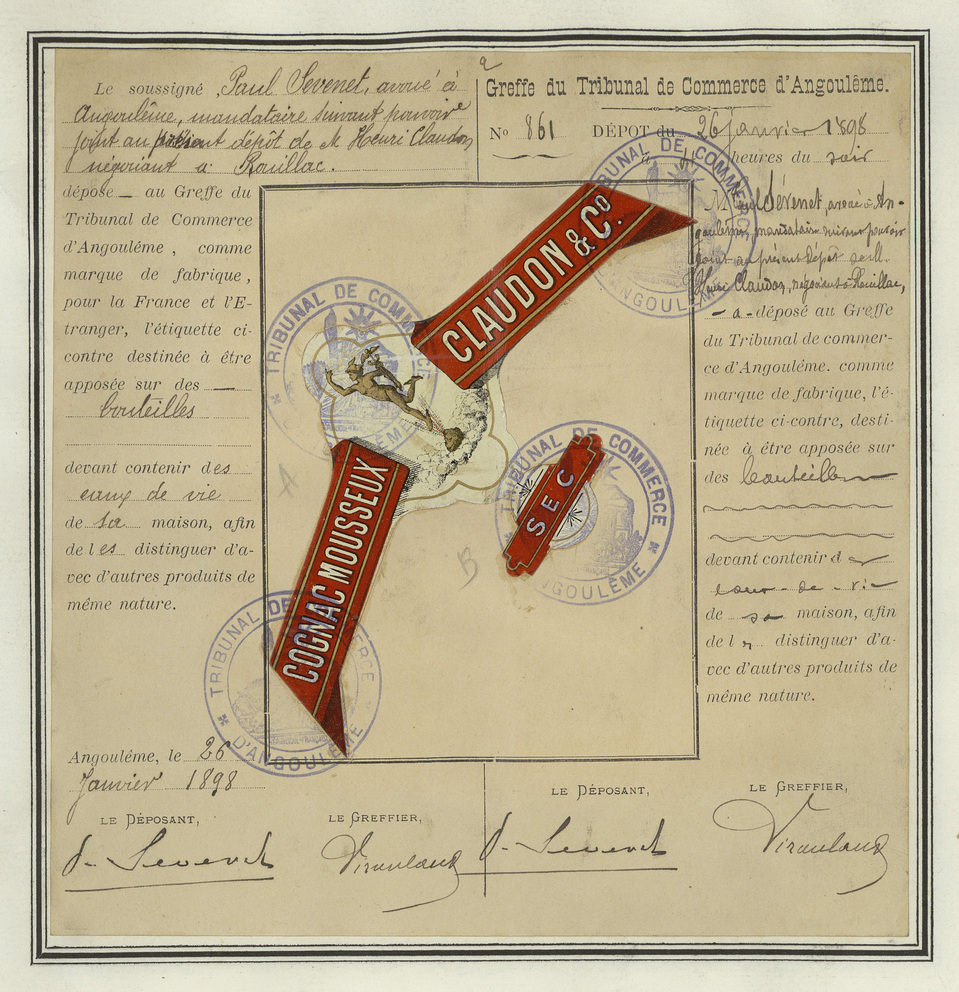 Le soussigné, Paul Sevenet, avoué à
Angoulême, mandataire suivant pouvoir
joint au présent dépôt de M Henri Claudon,
négociant à Rouillac.
dépose — au Greffe du
Tribunal de Commerce
d'Angoulême, comme
marque de fabrique,
pour la France et l'E-
tranger, l'étiquette ci-
contre destinée à être
apposée sur des —
bouteilles
devant contenir des
eaux de vie
de sa maison, afin
de les distinguer d'a-
vec d'autres produits de
même nature.
Angoulême, le 26
Janvier 1898
LE DÉPOSANT,
LE GREFFIER,
P. Sevenet
CLAUDON & Co
COGNAC MOUSSEUX
SEC
A
B
TRIBUNAL DE COMMERCE
D'ANGOULÊME
TRIBUNAL DE COMMERCE
ANGOULÊME
TRIBUNAL DE COMMERCE
D'ANGOULÊME
TRIBUNAL DE COMMERCE
D'ANGOULÊME
Greffe du Tribunal de Commerce d'Angoulême.
No 861 DÉPOT du 26 janvier 1898
heures du soir
Paul Sévenet, avoué à An-
goulême, mandataire suivant pouvoir
joint au présent dépôt de M.
Henri Claudon, négociant à Rouillac,
— a - déposé au Greffe
du Tribunal de commer-
ce d'Angoulême. comme
marque de fabrique, l'é-
tiquette ci-contre, desti-
née à être apposée sur
des bouteilles
devant contenir d
eaux-de-vie
de sa maison, afin
de l distinguer d'a-
vec d'autres produits de
même nature.
LE DÉPOSANT,
LE GREFFIER,
P. Sevenet